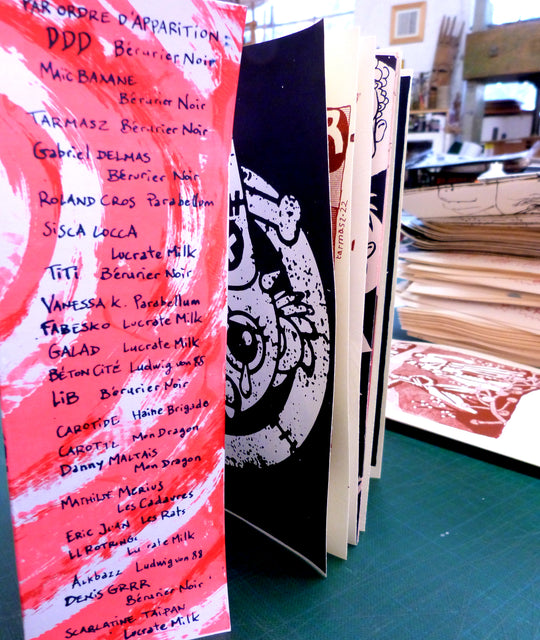 PAR ORDRE D'APPARITION :
DDD Bérurier Noir
Maïc BATANE
Bérurier Noir
TARMASZ Bérurier Noir
Gabriel DELMAS
Bérurier Noir
ROLAND CROS Parabellum
SISCA LOCCA
Lucrate Milk
TiTi Bérurier Noir
VANESSA K. Parabellum
FABESKO Lucrate Milk
GALAD Lucrate Milk
BÉTON CITÉ Ludwig von 88
LiB Bérurier Noir
CAROTIDE Haine Brigade
CAROTTL Mon Dragon
Danny MALTAIS
Mon Dragon
MATHILDE MERIUS
Les Cadavres
ERIC JUAN Les Rats
LL ROTRING
Lucrate Milk
Alkbazz Ludwig von 88
DENIS GRRR
Bérurier Noir
SCARLATINE TAIPAN
Lucrate Milk
R
tarmasz·22